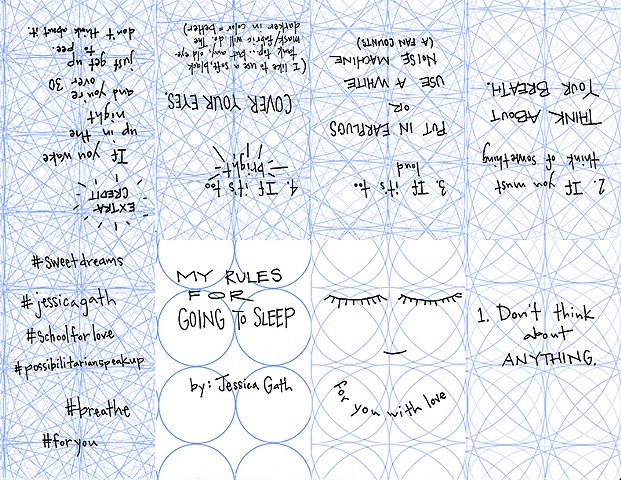 MY RULES
FOR
GOING TO SLEEP
by: Jessica Gath
for you with love
1. Don't think
about
ANYTHING.
2. If you must
think of something
THINK ABOUT
YOUR BREATH.
3. If it's too
loud
PUT IN EARPLUGS
OR
USE A WHITE
NOISE MACHINE
(A FAN COUNTS)
4. If it's too
bright
COVER YOUR EYES.
(I like to use a soft, black
tank top... but, any old eye-
mask/fabric will do. The
darker in color = better)
EXTRA
CREDIT
If you wake
up in the
night
and you're
over 30
just get up
to pee.
don't think about it.
#sweetdreams
#jessicagath
#schoolforlove
#possibilitarianspeakup
#breathe
#foryou